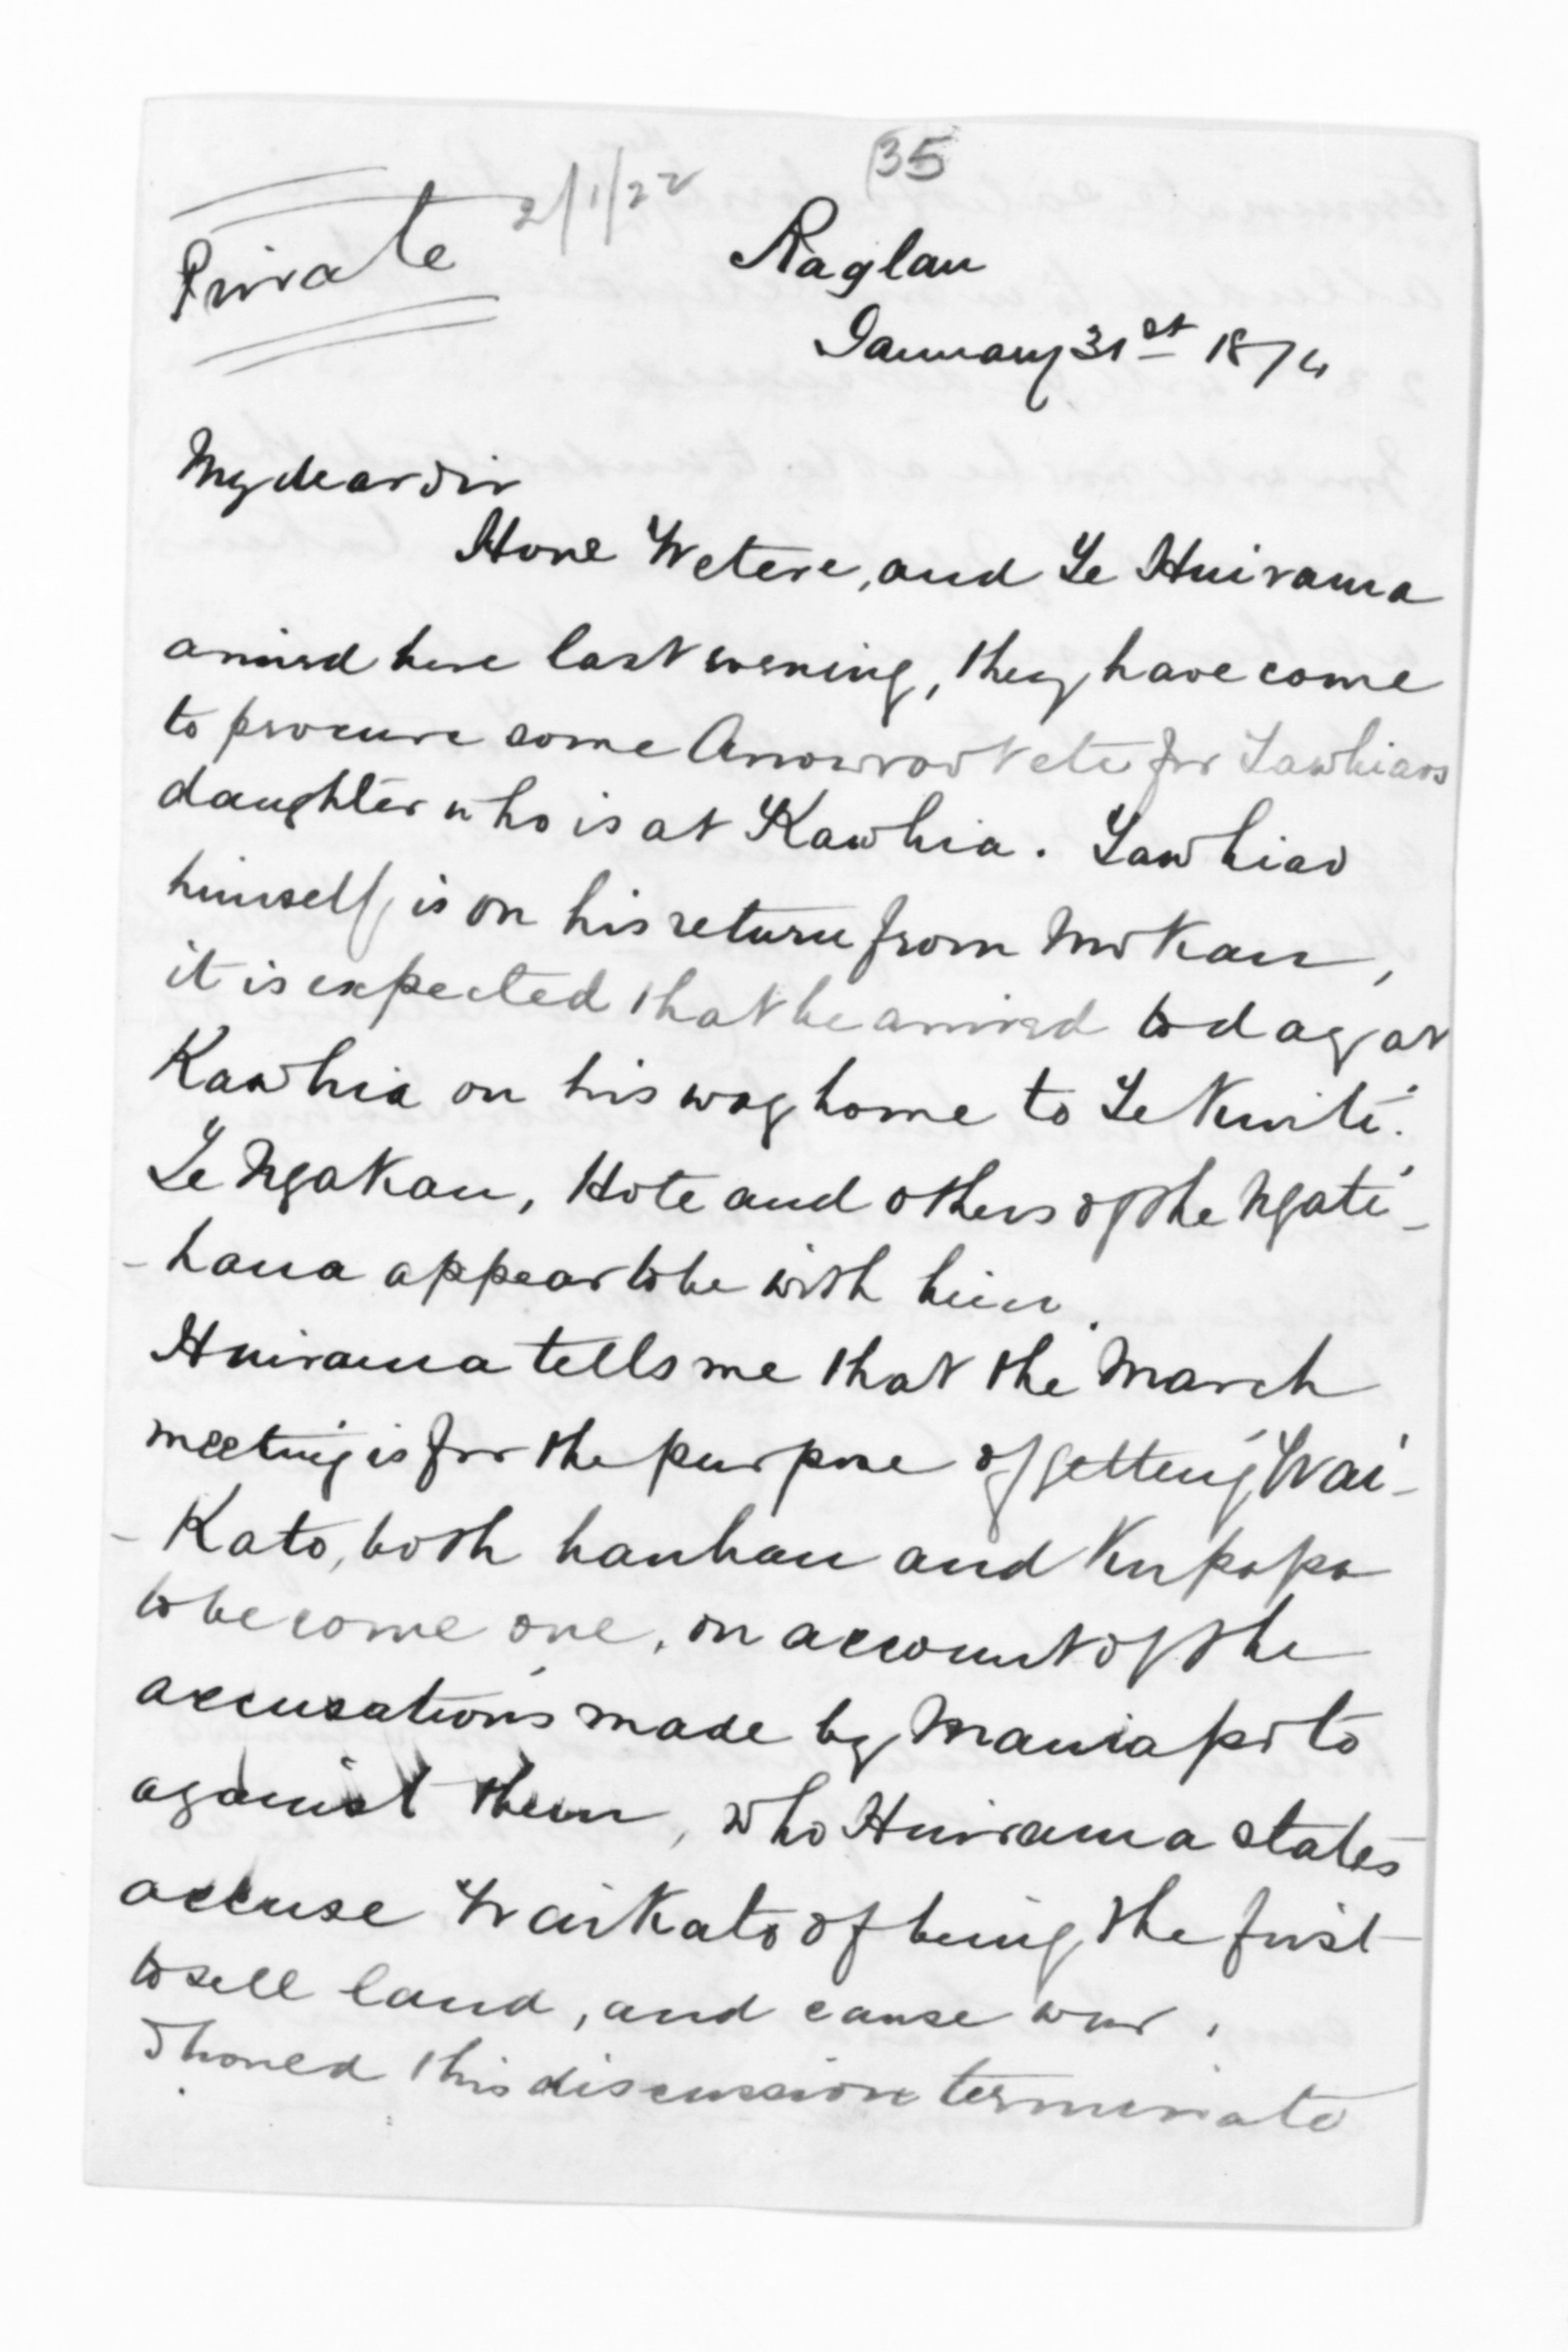 35
Private 2/1/22
Raglan
January 31st 1874
My dear Sir
Hone Wetere, and Te Huirama
arrived here last evening, they have come
to procure some Arrowroot etc for Tawhiaos
daughter who is at Kawhia. Tawhiao
himself, is on his return from Mokau,
it is expected that he arrived today at
Kawhia on his way home to Te Kuiti.
Te Ngakau, Hote and others of the Ngati-
-haua appear to be with him.
Huirama tells me that the March
meeting is for the purpose of getting Wai-
-Kato, both hauhau and Kupapa
to become one, on account of the
accusations made by Maniapoto
against them, who Huirama states
accuse Waikato of being the first
to sell land, and cause war.
Should this discussion terminate